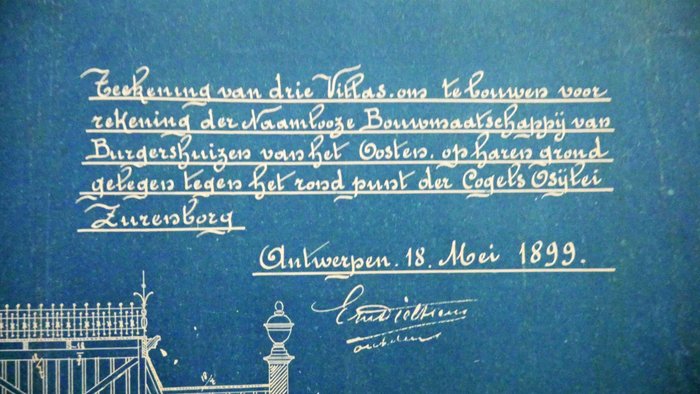 Teekening van drie Villas. om te bouwen voor
rekening der Naamlooze Bouwmaatschappij van
Burgershuizen van het Oosten. op haren grond
gelegen tegen het rond punt der Cogels Osÿlei
Zurenborg
Antwerpen. 18. Mei 1899.